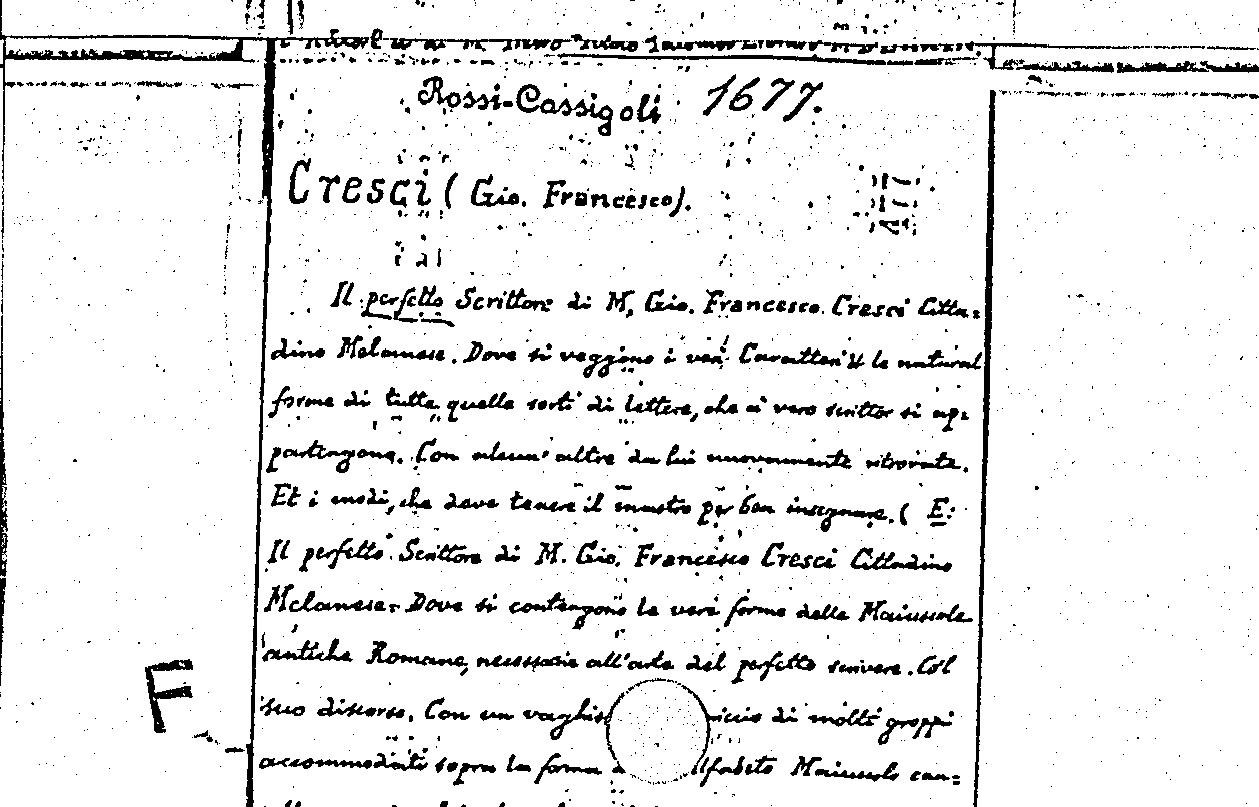 Rossi-Cassigoli 1677.
Cresci (Gio. Francesco).
Il perfetto Scrittore di M. Gio. Francesco Cresci Citta=
dino Melanese. Dove si veggono i veri Caratteri & le natural
forme di tutte quelle sorti di lettere, che a vero scrittor si ap=
partengono. Con alcun' altre da lui nuovamente ritrovate.
Et i modi, che deve tenere il mastro per ben insegnare. ( E:
Il perfetto Scrittore di M. Gio. Francesco Cresci Cittadino
Melanese. Dove si contengono le vere forme delle Maiuscole
antiche Romane, necessarie all'arte del perfetto scrivere. Col
suo discorso. Con un di molti groppi
F
accommodati sopra la forma Maiuscolo can=